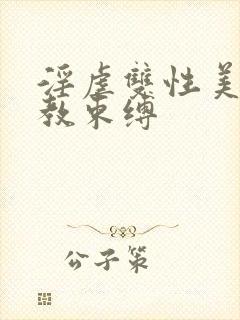 淫虐雙性美
教束缚
公子策